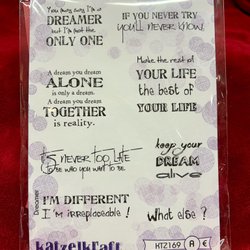 You may say I'm a
DREAMER
but I'm not the
ONLY ONE
IF YOU NEVER TRY
YOU'LL NEVER KNOW.
A dream you dream
ALONE
is only a dream.
A dream you dream
TOGETHER
is reality.
Make the rest of
YOUR LIFE
the best of
YOUR LIFE
IT'S NEVER TOO LATE
TO BE WHO YOU WANT TO BE
keep your
DREAM
alive
I'M DIFFERENT
I'm irreplaceable!
What else?
Dreamer
Katzelkraft
KTZ169 A €